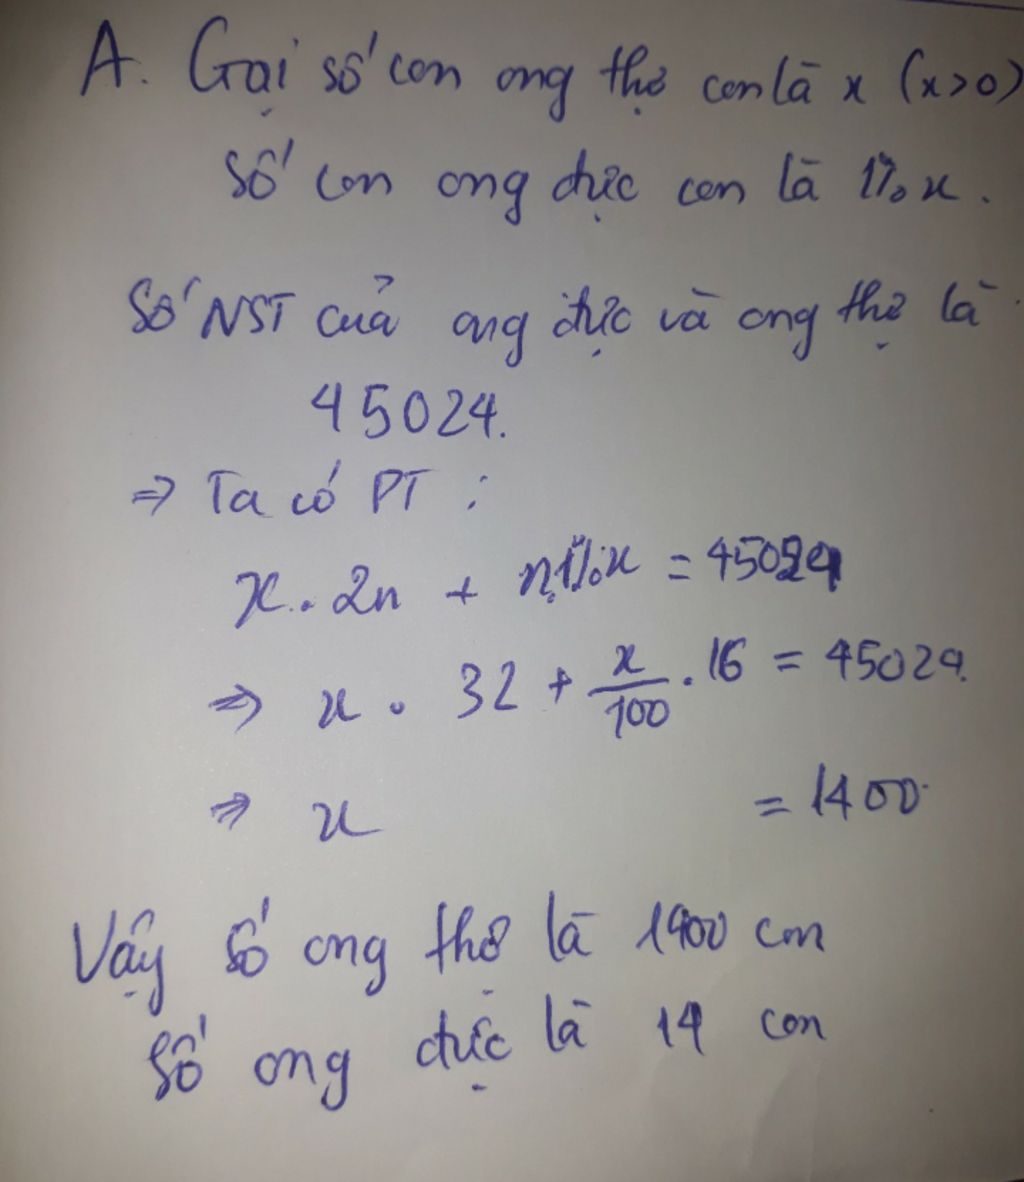 A. Gọi số con ong thợ con là x (x>0)
Số con ong đực con là 1% x.
Số NST của ong đực và ong thợ là
45024.
⇒ Ta có PT :
x . 2n + n.1%x = 45024
⇒ x . 32 + x/100 . 16 = 45024.
⇒ x = 1400
Vậy số ong thợ là 1400 con
Số ong đực là 14 con